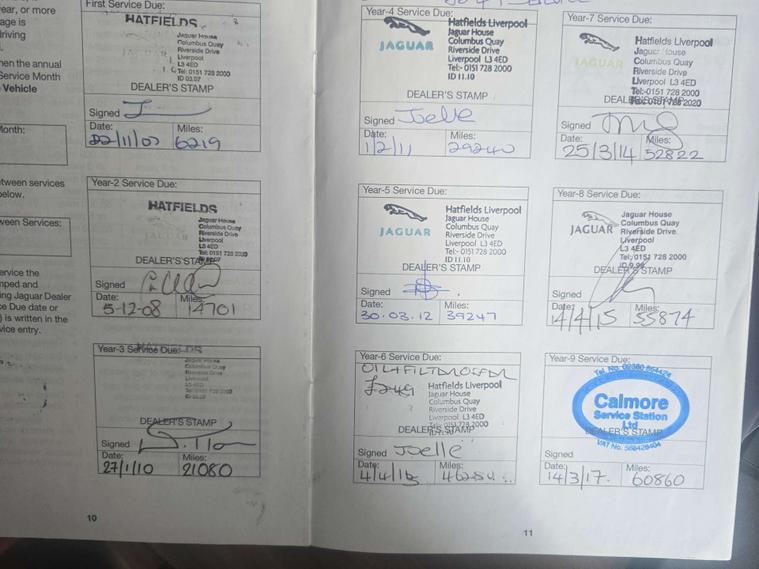 ear, or more
age is
driving
hen the annual
Service Month
Vehicle
Month:
tween services
below.
ween Services:
ervice the
mped and
ing Jaguar Dealer
e Due date or
) is written in the
vice entry.
First Service Due:
HATFIELDS
Jaguar House
Columbus Quay
Riverside Drive
Liverpool
L3 4ED
Tel: 0151 728 2000
ID 03.07
DEALER'S STAMP
Signed
Date: Miles:
22/11/07 6219
Year-2 Service Due:
HATFIELDS
JAGUAR
Jaguar House
Columbus Quay
Riverside Drive
Liverpool
L3 4ED
Tel: 0151 728 2000
DEALER'S STAMP
Signed
Date: Miles:
5-12-08 14701
Year-3 Service Due:
HATFIELDS
Jaguar House
Columbus Quay
Riverside Drive
Liverpool
L3 4ED
DEALER'S STAMP
Signed
Date: Miles:
27/1/10 21080
10
Year-4 Service Due:
JAGUAR
Hatfields Liverpool
Jaguar House
Columbus Quay
Riverside Drive
Liverpool L3 4ED
Tel:- 0151 728 2000
ID 11.10
DEALER'S STAMP
Signed Joelle
Date: Miles:
1/2/11 29240
Year-5 Service Due:
JAGUAR
Hatfields Liverpool
Jaguar House
Columbus Quay
Riverside Drive
Liverpool L3 4ED
Tel:- 0151 728 2000
ID 11.10
DEALER'S STAMP
Signed
Date: Miles:
30.03.12 39247
Year-6 Service Due:
Hatfields Liverpool
Jaguar House
Columbus Quay
Riverside Drive
Liverpool L3 4ED
Tel:- 0151 728 2000
DEALER'S STAMP
Signed Joelle
Date: Miles:
4/4/13
Year-7 Service Due:
JAGUAR
Hatfields Liverpool
Jaguar House
Columbus Quay
Riverside Drive
Liverpool L3 4ED
Tel:-0151 728 2000
Fax: 0151 728 2020
DEALER'S STAMP
Signed
Date: Miles:
25/3/14 52822
Year-8 Service Due:
JAGUAR
Jaguar House
Columbus Quay
Riverside Drive
Liverpool
L3 4ED
Tel: 0151 728 2000
DEALER'S STAMP
Signed
Date: Miles:
14/4/15 55874
Year-9 Service Due:
Calmore
Service Station
Ltd
DEALER'S STAMP
VAT No.
Signed
Date: Miles:
14/3/17. 60860
11